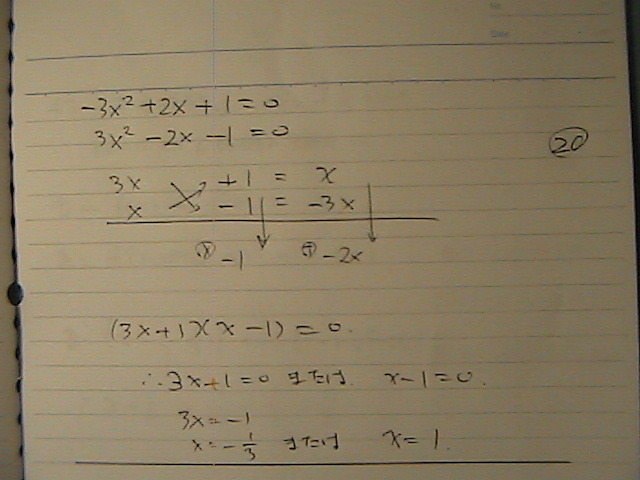 -3x² + 2x + 1 = 0
3x² - 2x - 1 = 0
⑳
3x +1 = x
x - 1 = -3x
-1 -2x
(3x+1)(x-1) = 0.
∴ 3x+1 = 0 または x-1 = 0.
3x = -1
x = -1/3 または x = 1.